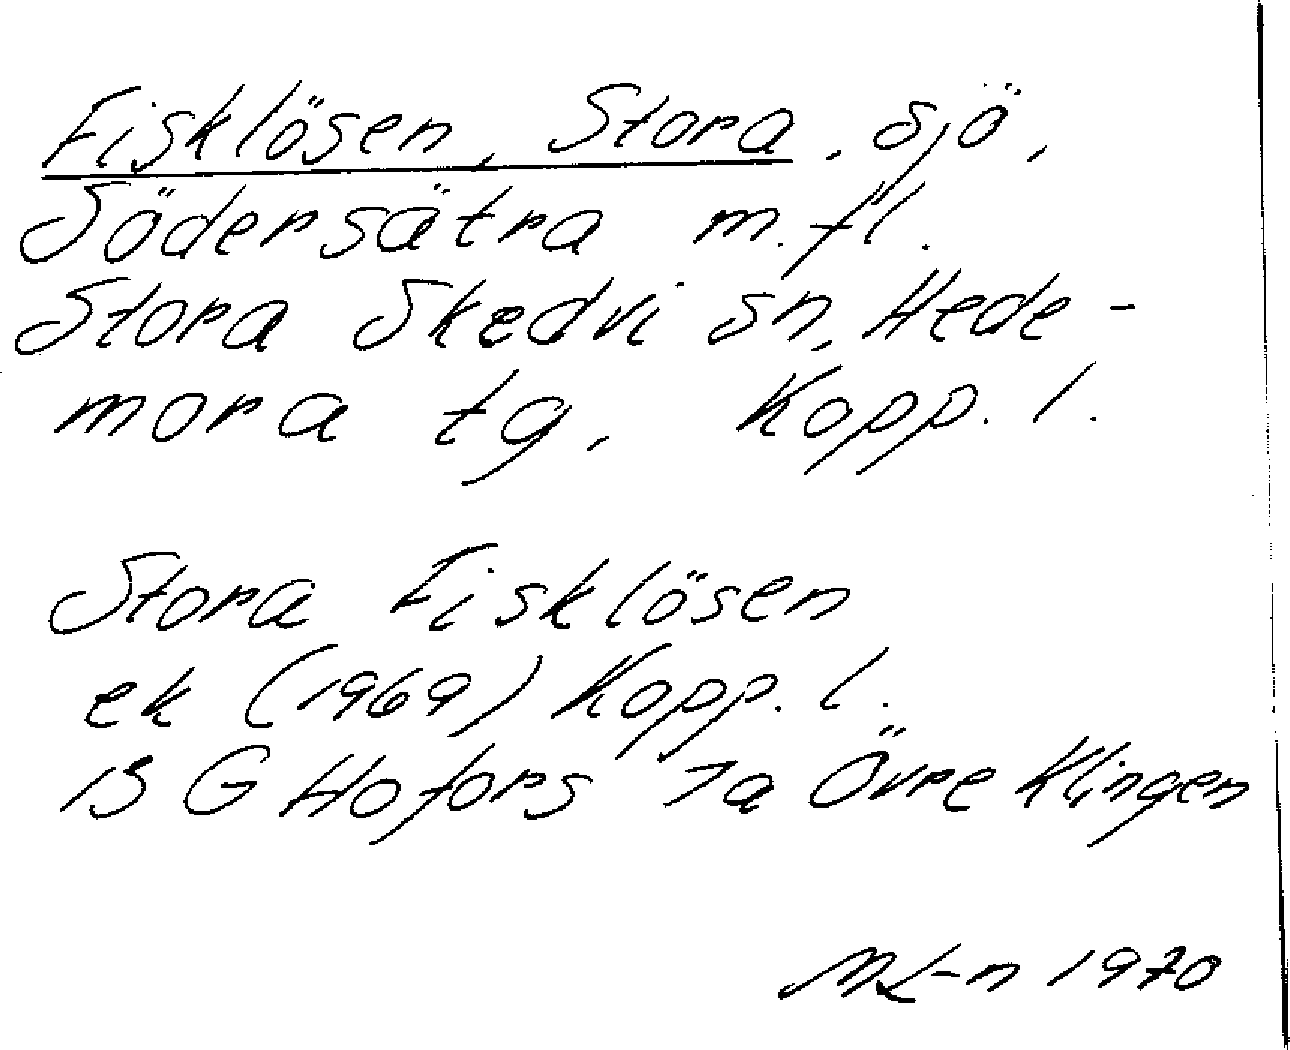 Fisklösen, Stora, sjö,
Södersätra m.fl.
Stora Skedvi sn, Hede-
mora tg, Kopp. l.
Stora Fisklösen
ek (1969) Kopp. l.
13 G Hofors 7a Övre Klingen
ML-n 1970